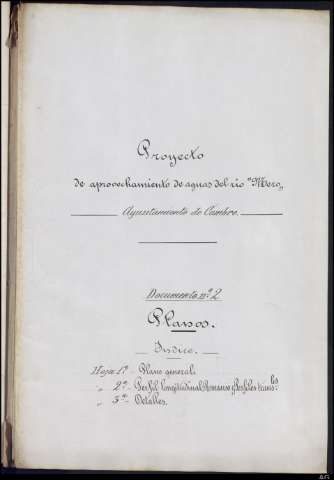 Proyecto
de aprovechamiento de aguas del río "Mero"
Ayuntamiento de Cambre.
Documento nº 2
Planos.
Indice.
Hoja 1ª - Plano general.
" 2ª - Perfil longitudinal y Perfiles transles
" 3ª - Detalles.